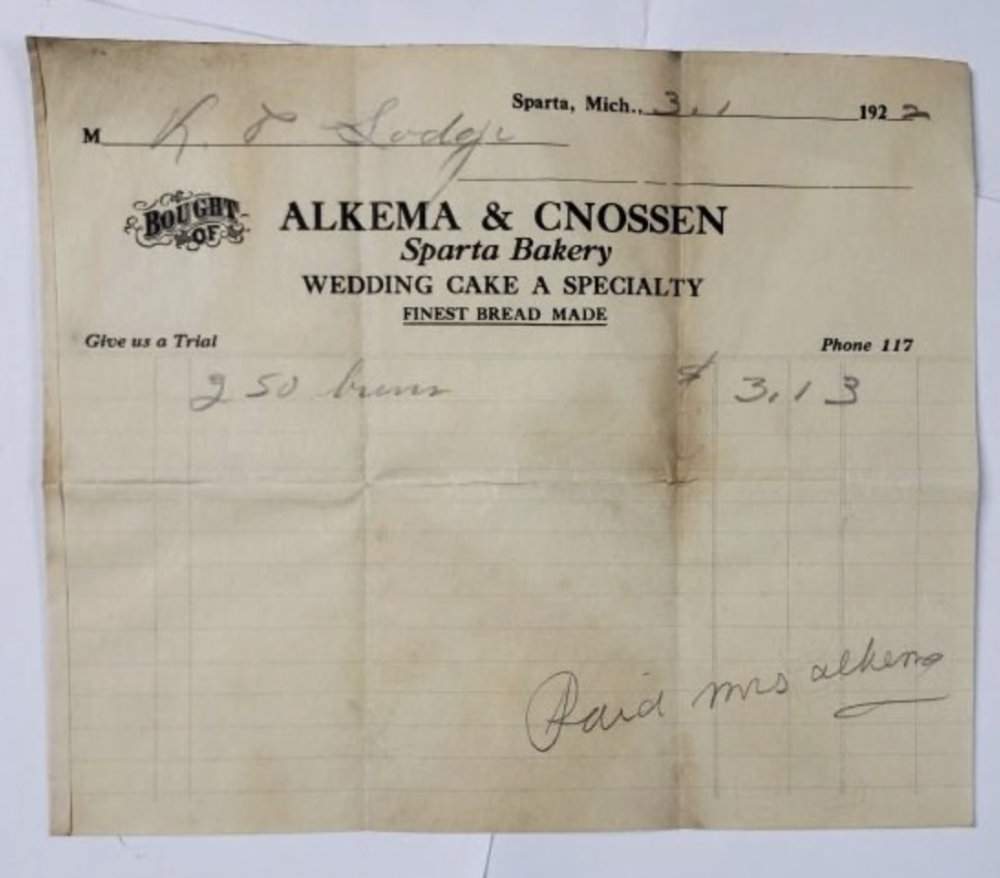 Sparta, Mich., 3.1 1922
M K. & Lodge
BOUGHT OF
ALKEMA & CNOSSEN
Sparta Bakery
WEDDING CAKE A SPECIALTY
FINEST BREAD MADE
Give us a Trial Phone 117
250 buns $ 3.13
Paid mrs alkema